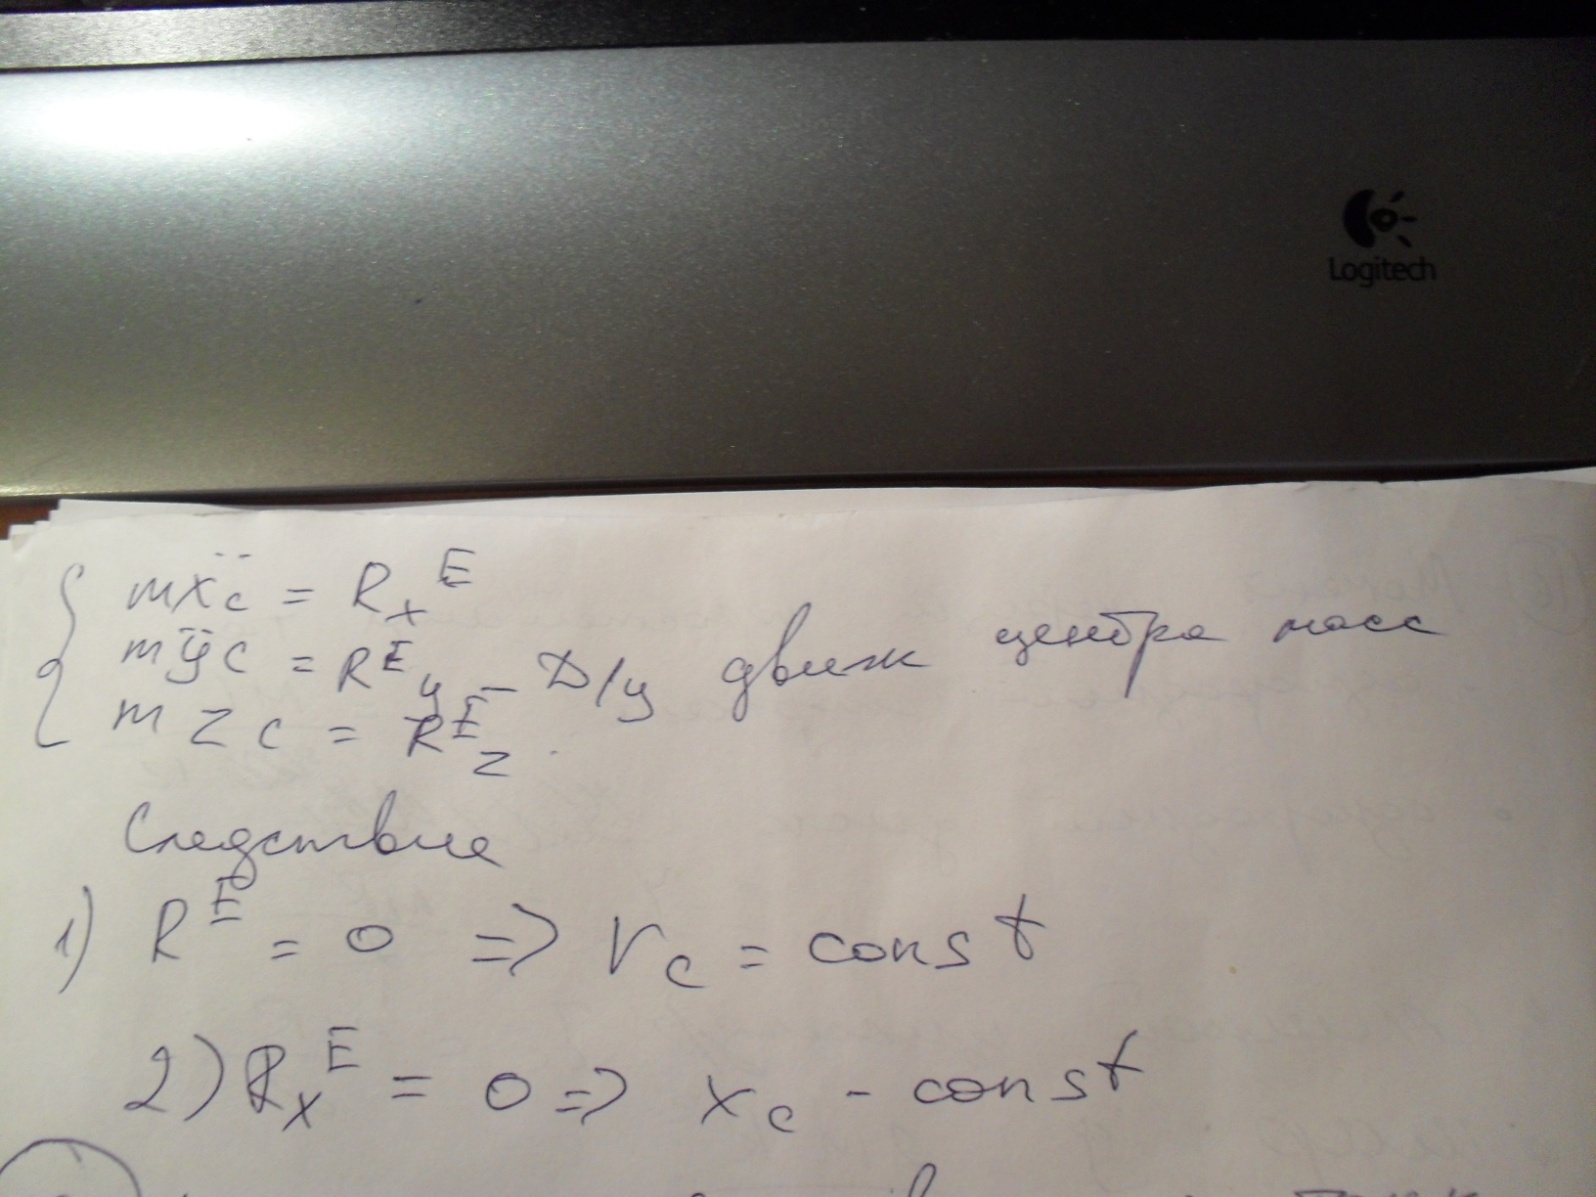 Logitech
mẍc = Rx^E
mÿc = R^Ey – Д/у движ центра масс
m z c = R^Ez
Следствие
1) R^E = 0 => Vc = const
2) Rx^E = 0 => xc - const